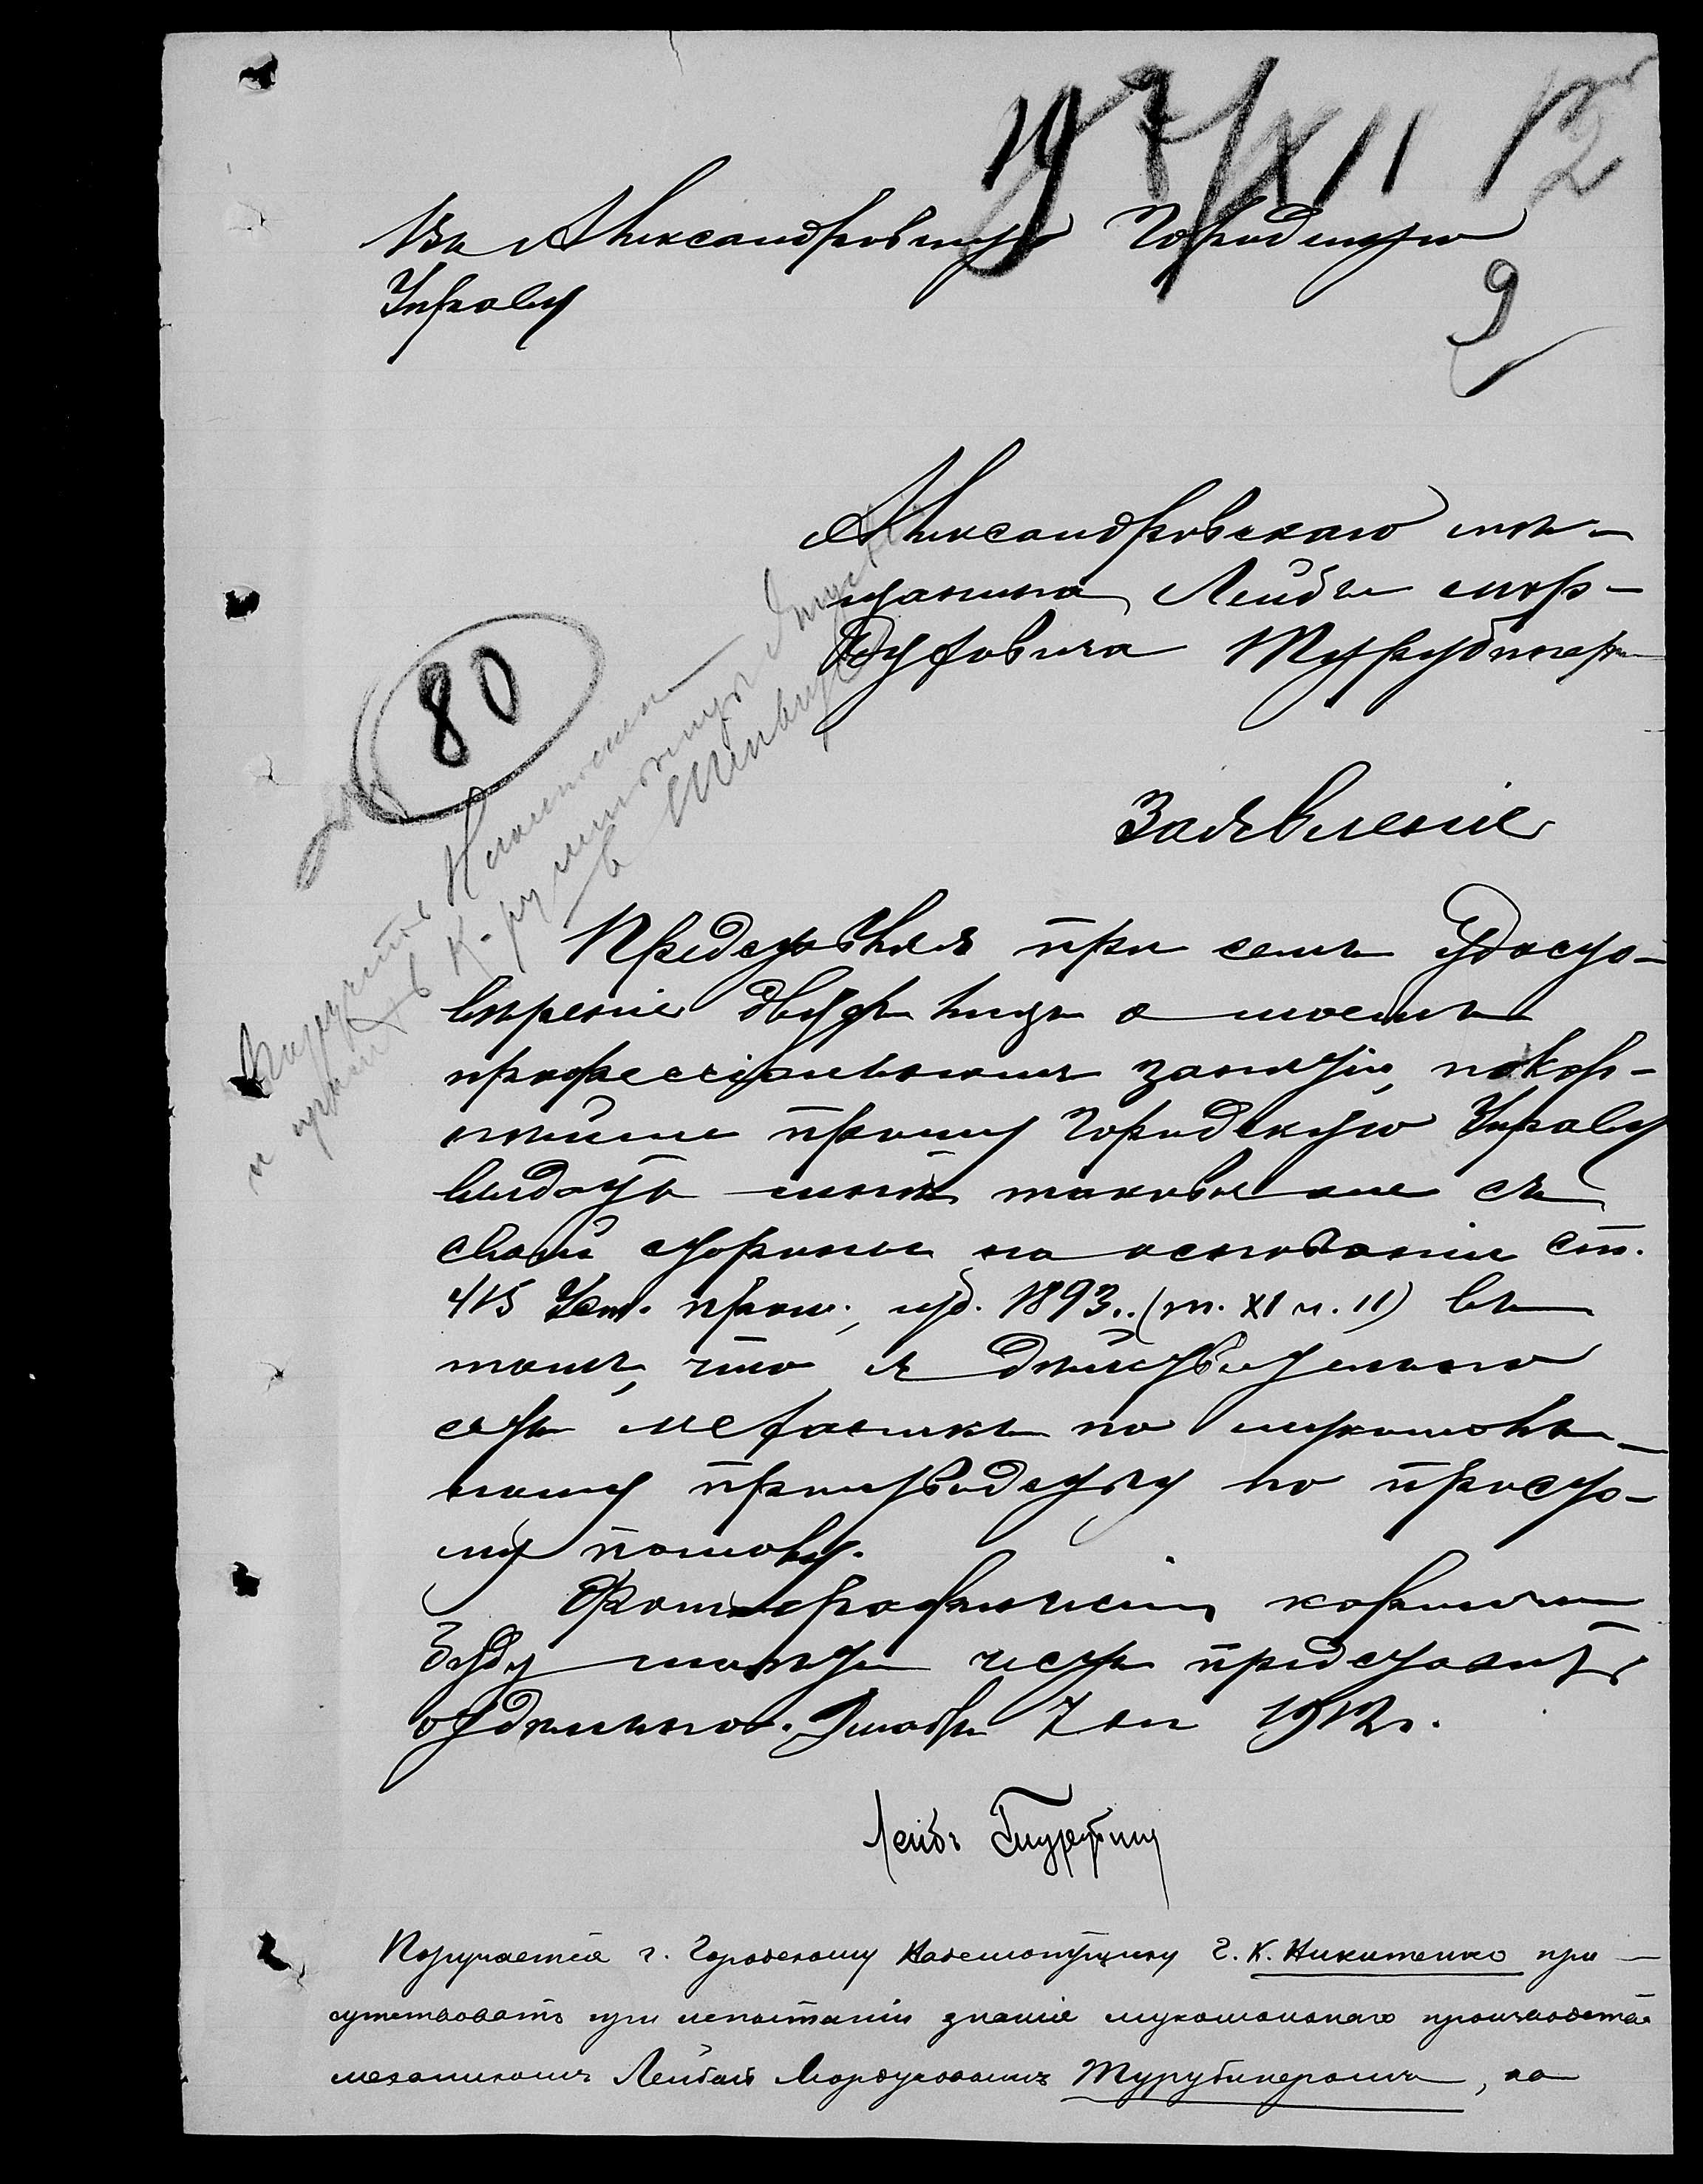 7/XII 12
Въ Александровскую Городскую
Управу
9
Александровскаго мѣ-
щанина Лейбы Мор-
духовича Турубинера
80
Заявленіе
Представляя при семъ удосто-
вѣреніе двухъ лицъ о моемъ
профессіональномъ занятіи, покор-
нѣйше прошу Городскую Управу
выдать мнѣ таковое же съ
своей стороны на основаніи ст.
415 Уст. пром., изд. 1893. (т. XI ч. II) въ
томъ, что я дѣйствительно
есть механикъ по мукомоль-
ному производству по просто-
му помолу.
Фотографическія карточки
буду имѣть честь представить
отдѣльно. Декабря 7 дня 1912 г.
Лейбъ
Поручается г. Городскому К. Никитенко при-
сутствовать при испытаніи знанія мукомольнаго производства
механикомъ Лейбой Мордуховичемъ Турубинеромъ, на